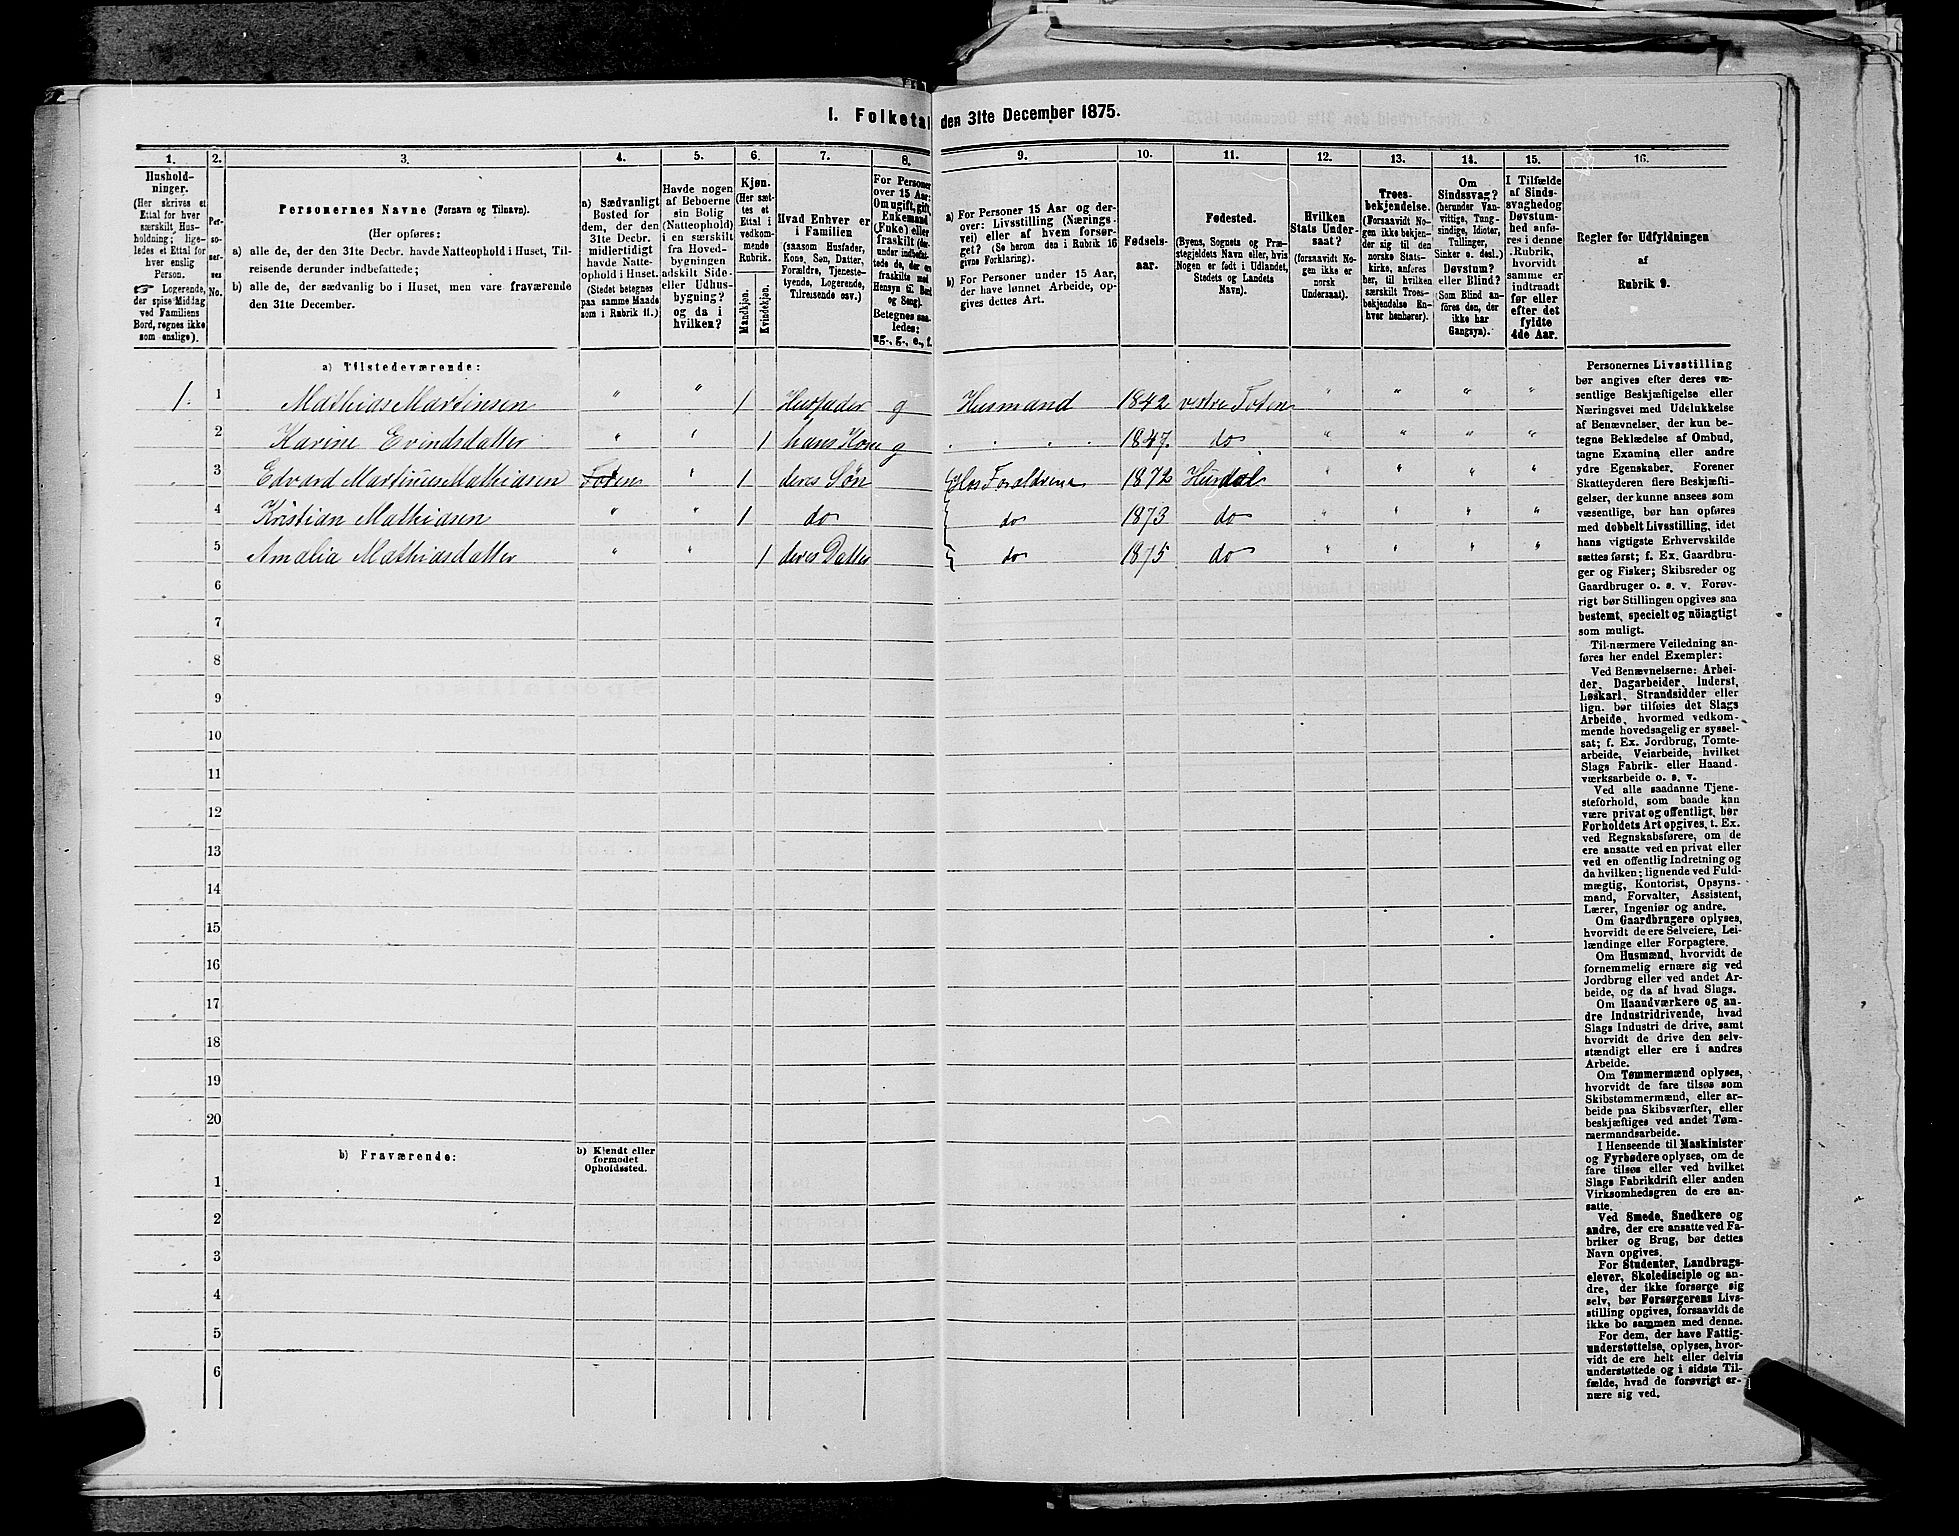 I. Folketal den 31te December 1875.
1. 2. 3. 4. 5. 6. 7. 8. 9. 10. 11. 12. 13. 14. 15. 16.
Hushold-
ninger.
(Her skrives et
Ettal for hver
særskilt Hus-
holdning; lige-
ledes et Ettal for
hver enslig
Person.
☞ Logerende,
der spise Middag
ved Familiens
Bord, regnes ikke
som enslige).
Per-
so-
ner-
nes
No.
Personernes Navne (Fornavn og Tilnavn).
(Her opføres:
a) alle de, der den 31te Decbr. havde Natteophold i Huset, Til-
reisende derunder indbefattede;
b) alle de, der sædvanlig bo i Huset, men vare fraværende
den 31te December.
a) Sædvanligt
Bosted for
dem, der den
31te Decbr.
midlertidigt
havde Natte-
ophold i Huset.
(Stedet betegnes
paa samme Maade
som i Rubrik 11.)
Havde nogen
af Beboerne
sin Bolig
(Natteophold)
i en særskilt
fra Hoved-
bygningen
adskilt Side-
eller Udhus-
bygning?
og da i
hvilken?
Kjøn.
(Her sæt-
tes et
Ettal i
vedkom-
mende
Rubrik.
Mandkjøn.
Kvindekjøn.
Hvad Enhver er
i Familien
(saasom Husfader,
Kone, Søn, Datter,
Forældre, Tjeneste-
tyende, Logerende,
Tilreisende osv.)
For Personer
over 15 Aar:
Om ugift, gift,
Enkemand
(Enke) eller
fraskilt (der-
under indbefat-
tede de, der ere
fraskilte med
Hensyn til Bord
og Seng).
Betegnes saa-
ledes:
ug., g., e., f.
a) For Personer 15 Aar og der-
over: Livsstilling (Nærings-
vei) eller af hvem forsør-
get? (Se herom den i Rubrik 16
givne Forklaring).
b) For Personer under 15 Aar,
der have lønnet Arbeide, op-
gives dettes Art.
Fødsels-
aar.
Fødested.
(Byens, Sognets og Præ-
stegjeldets Navn eller, hvis
Nogen er født i Udlandet,
Stedets og Landets
Navn).
Hvilken
Stats Under-
saat?
(forsaavidt No-
gen ikke er
norsk
Undersaat).
Troes-
bekjendelse.
(Forsaavidt No-
gen ikke bekjen-
der sig til den
norske Stats-
kirke, anføres
her, til hvilken
særskilt Troes-
bekjendelse En-
hver henhører).
Om
Sindssvag?
(herunder Van-
vittige, Tung-
sindige, Idioter,
Tullinger,
Sinker o. desl.)
Døvstum?
eller Blind?
(Som Blind an-
føres den, der
ikke har
Gangsyn).
I Tilfælde
af Sinds-
svaghed og
Døvstum-
hed anfø-
res i denne
Rubrik,
hvorvidt
samme er
indtraadt
før eller
efter det
fyldte
4de Aar.
Regler for Udfyldningen
af
Rubrik 9.
a) Tilstedeværende:
1. 1 Mathias Martinsen " " 1 Husfader g Husmand 1842 vestre Toten " " " "
2 Karine Evindsdatter " " 1 hans Kone g . . . . 1847. do " " " "
3 Edvard Martinus Mathiasen Toten " 1 deres Søn Hos Forældrene 1872 Hurdal " " " "
4 Kristian Mathiasen " " 1 do do 1873 do " " " "
5 Amalia Mathiasdatter " " 1 deres Datter do 1875 do " " " "
6
7
8
9
10
11
12
13
14
15
16
17
18
19
20
b) Fraværende:
b) Kjendt eller
formodet
Opholdssted.
1
2
3
4
5
6
Personernes Livsstilling
bør angives efter deres væ-
sentlige Beskjæftigelse eller
Næringsvei med Udelukkelse
af Benævnelser, der kun be-
tegne Beklædelse af Ombud,
tagne Examina eller andre
ydre Egenskaber. Forener
Skatteyderen flere Beskjæfti-
gelser, der kunne ansees som
væsentlige, bør han opføres
med dobbelt Livsstilling, idet
hans vigtigste Erhvervskilde
sættes først; f. Ex. Gaardbru-
ger og Fisker; Skibsreder og
Gaardbruger o. s. v. Forøv-
rigt bør Stillingen opgives saa
bestemt, specielt og nöiagtigt
som muligt.
Til nærmere Veiledning an-
føres her endel Exempler:
Ved Benævnelserne: Arbei-
der, Dagarbeider, Inderst,
Løskarl, Strandsidder eller
lign. bør tilføies det Slags
Arbeide, hvormed vedkom-
mende hovedsagelig er syssel-
sat; f. Ex. Jordbrug, Tomte-
arbeide, Veiarbeide, hvilket
Slags Fabrik- eller Haand-
værksarbeide o. s. v.
Ved alle saadanne Tjene-
steforhold, som baade kan
være privat og offentligt, bør
Forholdets Art opgives, t. Ex.
ved Regnskabsførere, om de
ere ansatte ved en privat eller
ved en offentlig Indretning og
da hvilken; lignende ved Fuld-
mægtig, Kontorist, Opsyns-
mand, Forvalter, Assistent,
Lærer, Ingeniør og andre.
Om Gaardbrugere oplyses,
hvorvidt de ere Selveiere, Lei-
lændinge eller Forpagtere.
Om Husmænd, hvorvidt de
fornemmelig ernære sig ved
Jordbrug eller ved andet Ar-
beide, og da af hvad Slags.
Om Haandværkere og an-
dre Industridrivende, hvad
Slags Industri de drive, samt
hvorvidt de drive den selv-
stændigt eller ere i andres
Arbeide.
Om Tømmermænd oplyses,
hvorvidt de fare tilsøs som
Skibstømmermænd, eller ar-
beide paa Skibsværfter, eller
beskjæftiges ved andet Tøm-
mermandsarbeide.
I Henseende til Maskinister
og Fyrbødere oplyses, om de
fare tilsøs eller ved hvilket
Slags Fabrikdrift eller anden
Virksomhedsgren de ere an-
satte.
Ved Smede, Snedkere og
andre, der ere ansatte ved Fa-
briker og Brug, bør dettes
Navn opgives.
For Studenter, Landbrugs-
elever, Skoledisciple og an-
dre, der ikke forsørge sig
selv, bør Forsørgerens Livs-
stilling opgives, forsaavidt de
ikke bo sammen med denne.
For dem, der have Fattig-
understøttelse, oplyses, hvor-
vidt de ere helt eller delvis
understøttede og i sidste Til-
fælde, hvad de forøvrigt er-
nære sig ved.